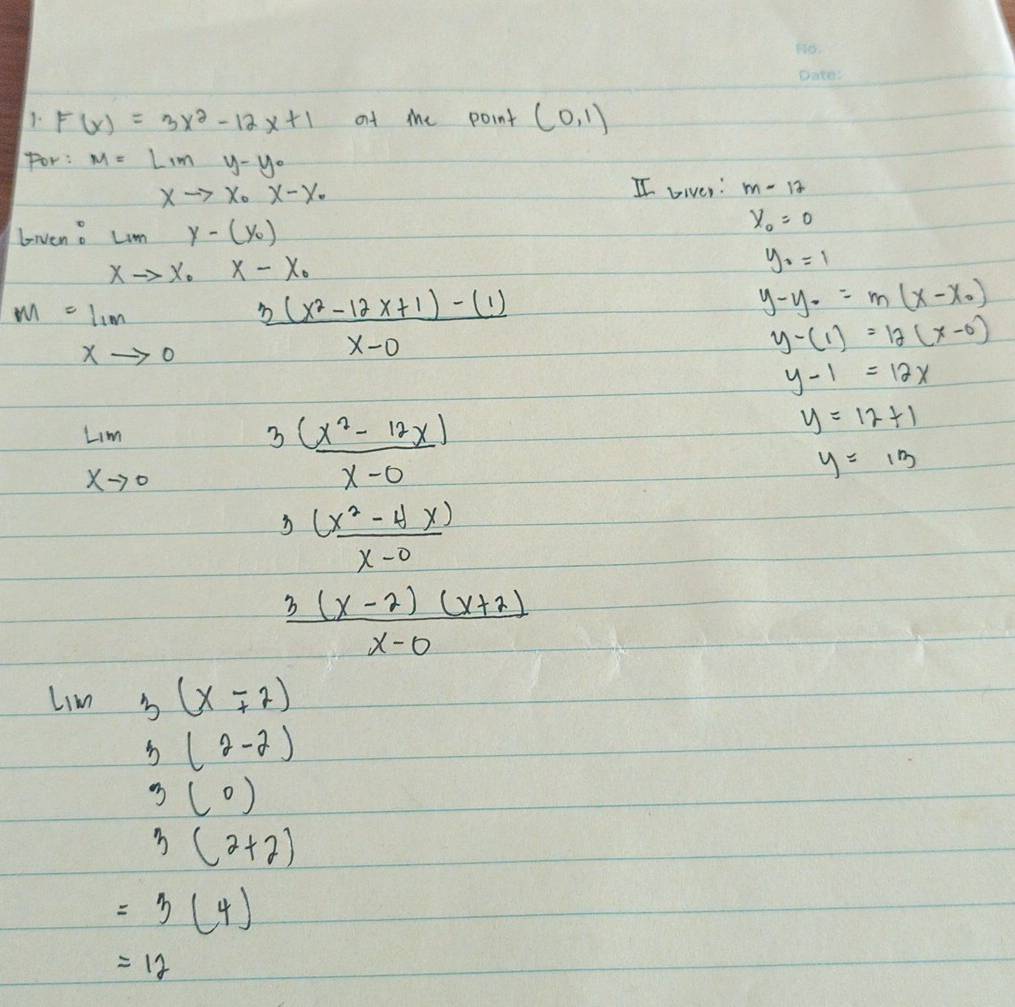 No.
Date:
1. F(x) = 3x² - 12x + 1 at the point (0,1)
For: M = Lim y - y₀
x → x₀ x - x₀
Given: Lim y - (y₀)
x → x₀ x - x₀
M = lim 3(x² - 12x + 1) - (1)
x → 0 x - 0
Lim 3(x² - 12x)
x → 0 x - 0
3(x² - 4x)
x - 0
3(x - 2)(x + 2)
x - 0
Lim 3(x ∓ 2)
3(2 - 2)
3(0)
3(2 + 2)
= 3(4)
= 12
II Given: m - 12
x₀ = 0
y₀ = 1
y - y₀ = m(x - x₀)
y - (1) = 12(x - 0)
y - 1 = 12x
y = 12 + 1
y = 13